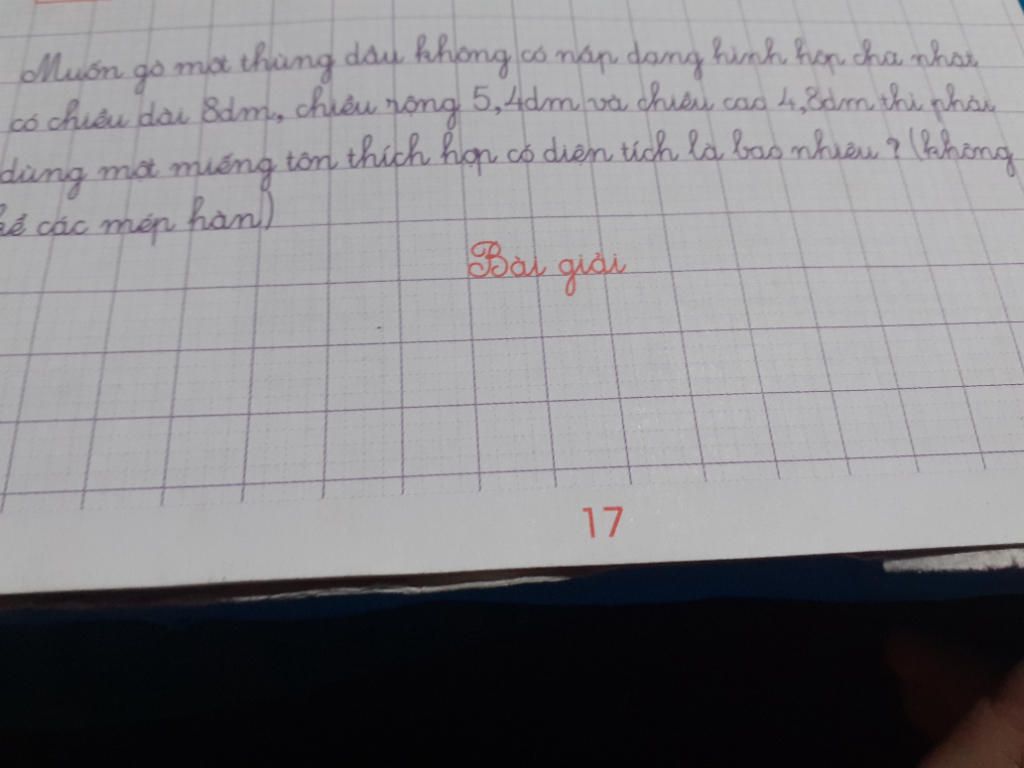 Muốn gò một thùng dầu không có nắp dạng hình hộp chữ nhật
có chiều dài 8dm, chiều rộng 5,4dm và chiều cao 4,8dm thì phải
dùng một miếng tôn thích hợp có diện tích là bao nhiêu? (không
kể các mép hàn)
Bài giải
17